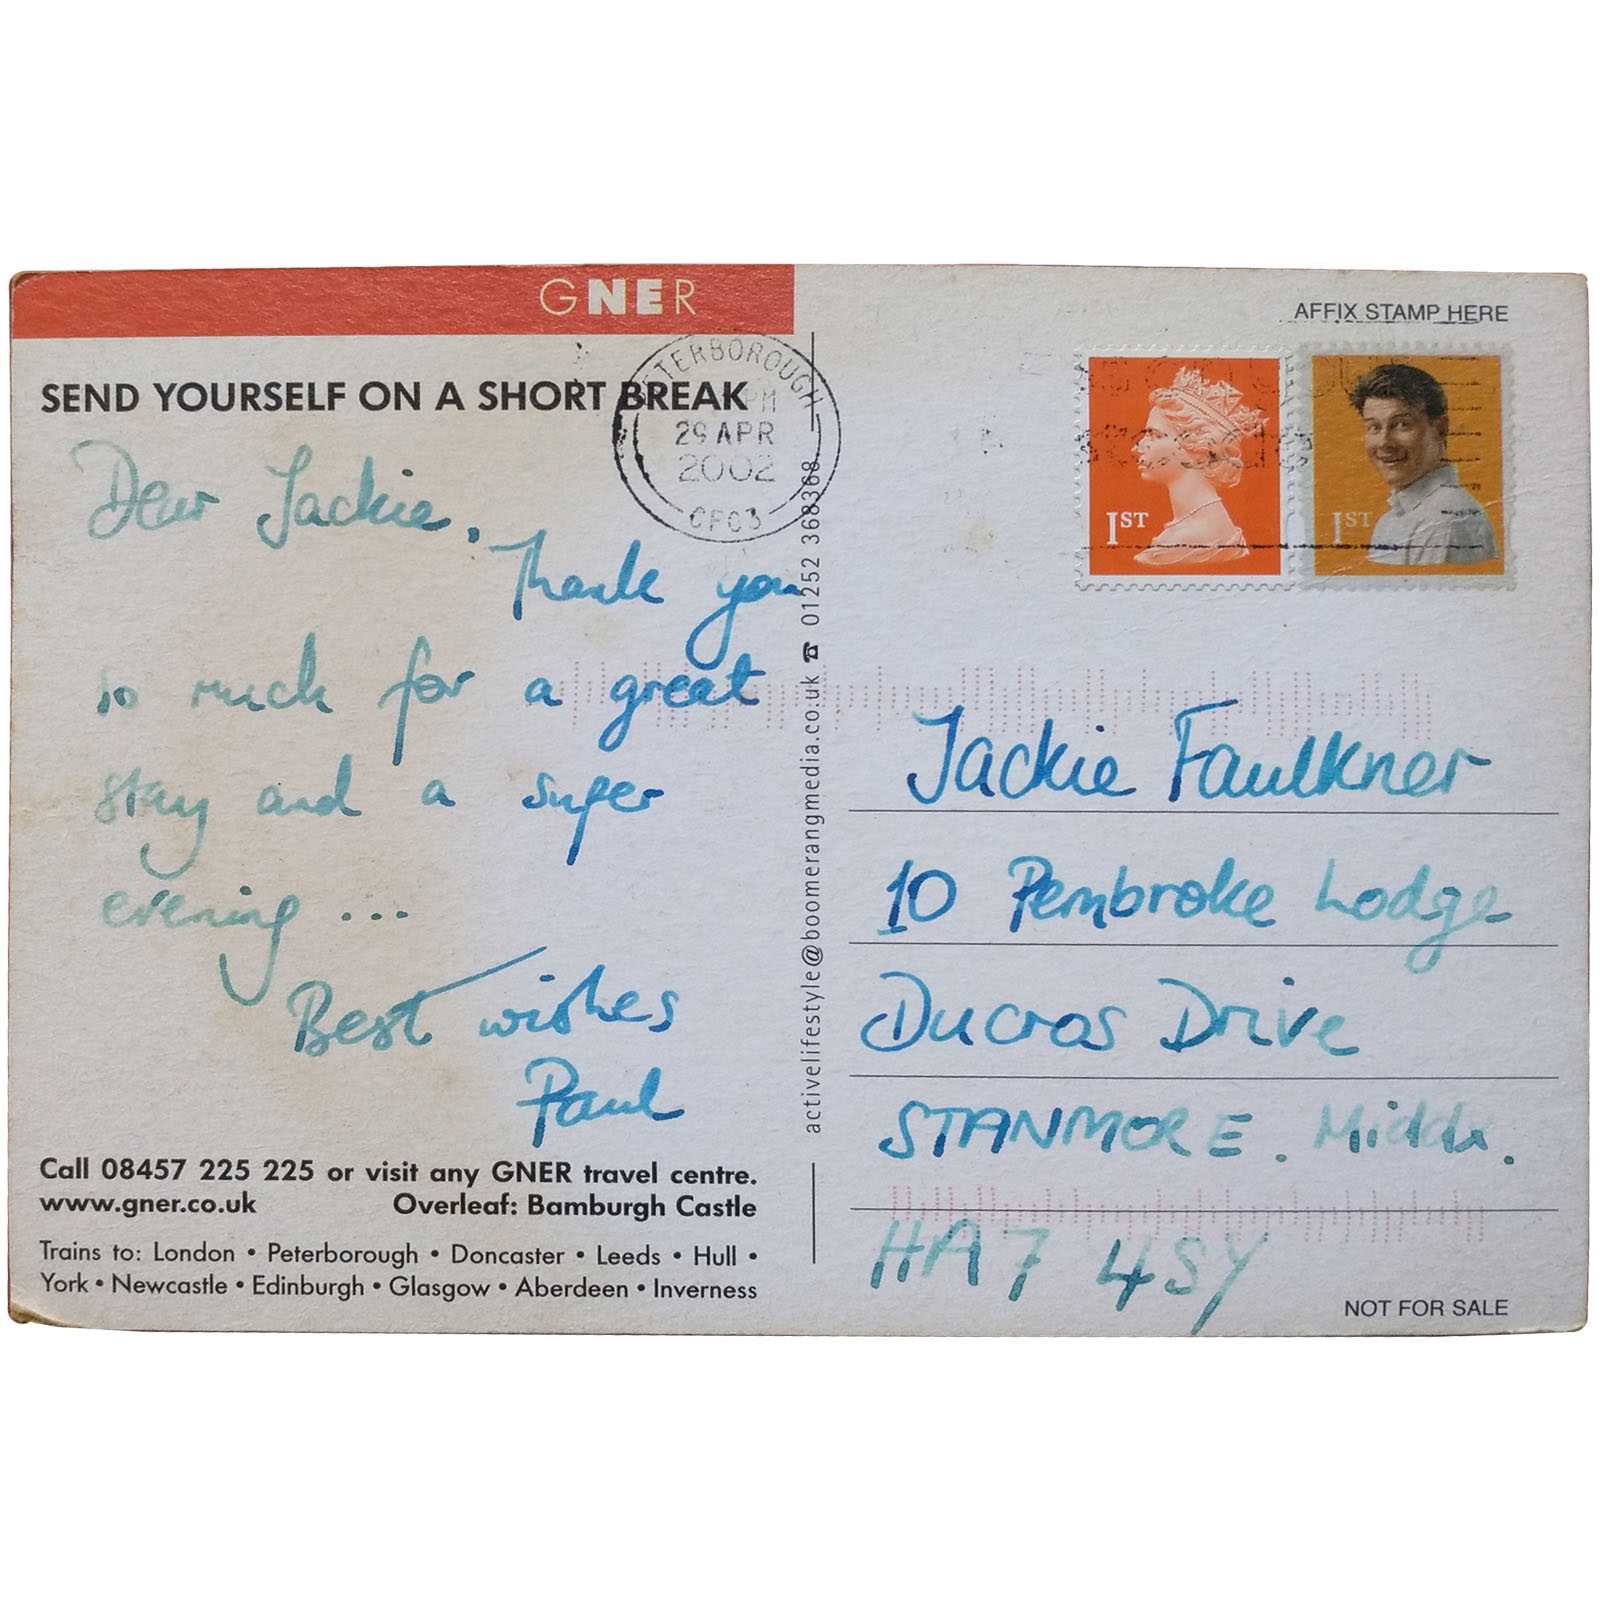 GNER
AFFIX STAMP HERE
SEND YOURSELF ON A SHORT BREAK
PETERBOROUGH
PM
29 APR
2002
CFC3
1ST
1ST
Dear Jackie,
Thank you
so much for a great
stay and a super
evening ...
Best wishes
Paul
Call 08457 225 225 or visit any GNER travel centre.
www.gner.co.uk Overleaf: Bamburgh Castle
Trains to: London • Peterborough • Doncaster • Leeds • Hull •
York • Newcastle • Edinburgh • Glasgow • Aberdeen • Inverness
activelifestyle@boomerangmedia.co.uk ☎ 01252 368368
Jackie Faulkner
10 Pembroke Lodge
Ducros Drive
STANMORE. Middx.
HA7 4SY
NOT FOR SALE